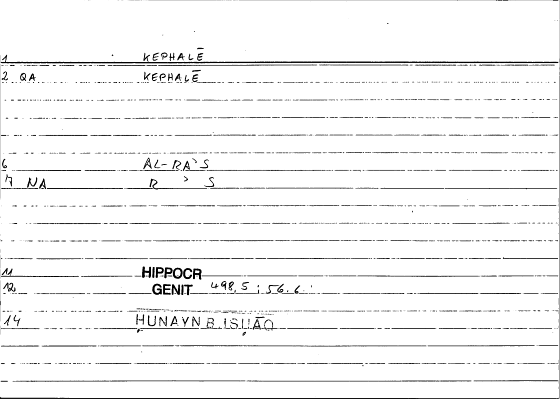 1 KEPHALĒ
2 QA KEPHALĒ
6 AL-RAʾS
7 NA R ʾ S
11 HIPPOCR
12 GENIT 498,5 ; 56.6
14 ḤUNAYN B. ISḤĀQ